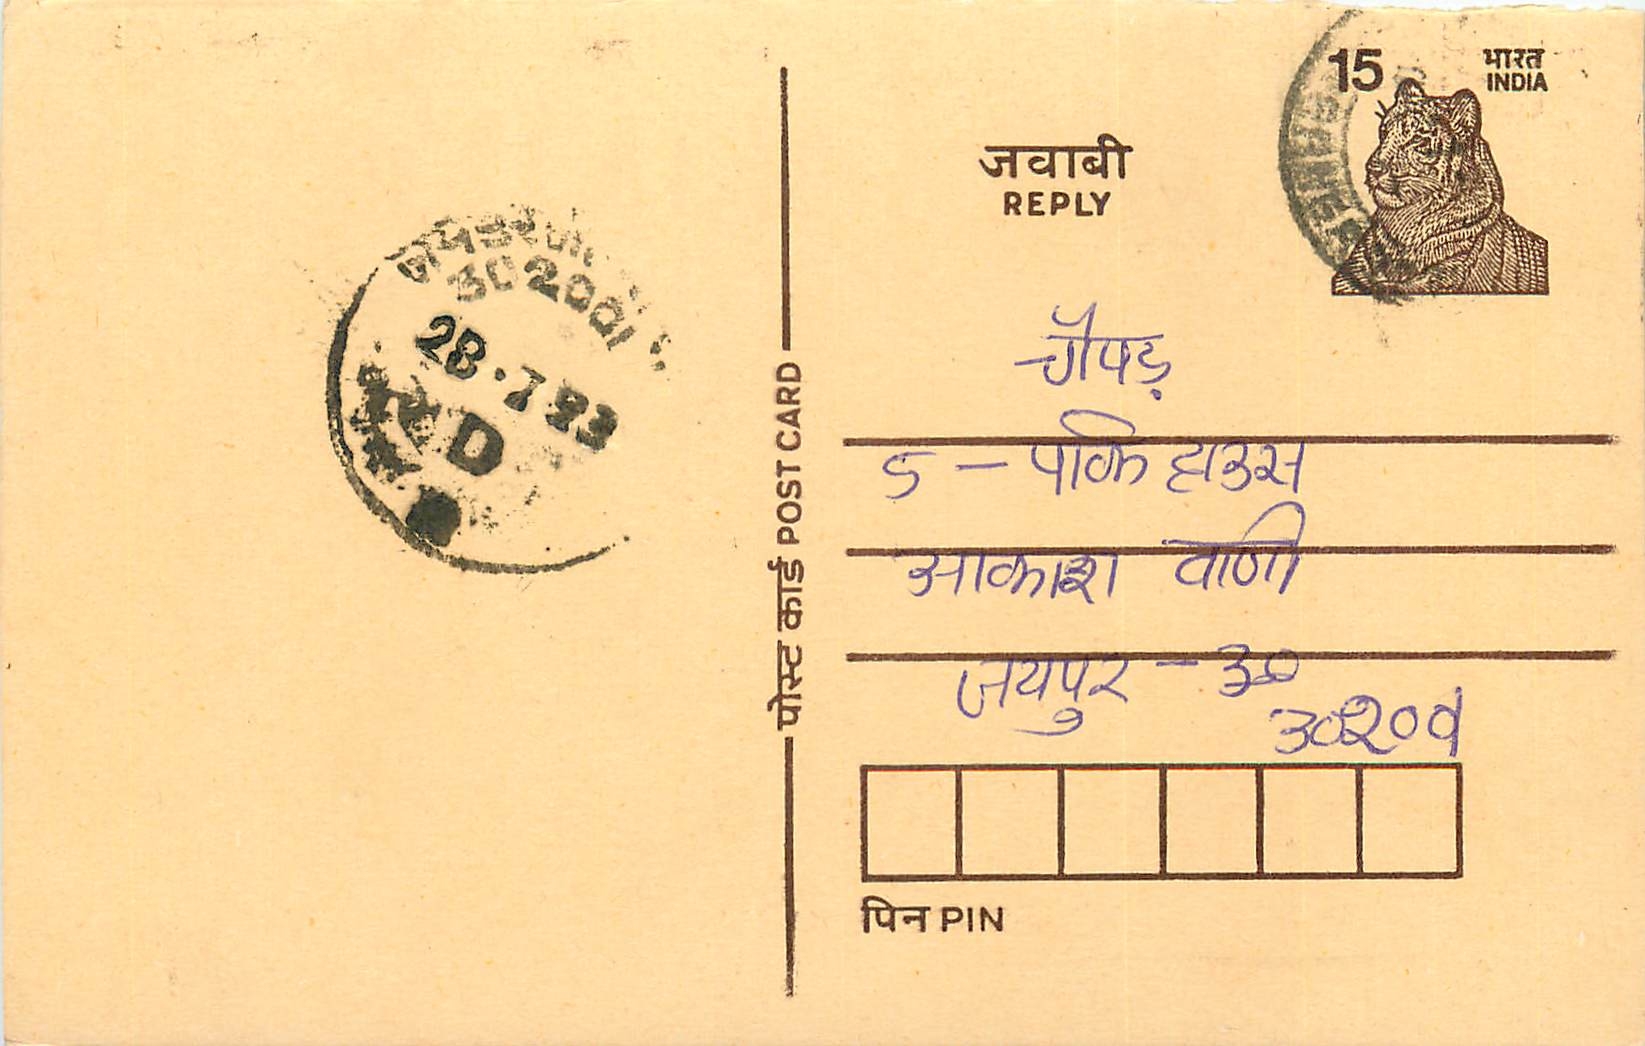 15 भारत
INDIA
जवाबी
REPLY
302001
28.7 93
D
चौपड़
5 - पार्क हाउस
आकाश वाणी
जयपुर - ३०
३०२००१
पोस्ट कार्ड POST CARD
पिन PIN